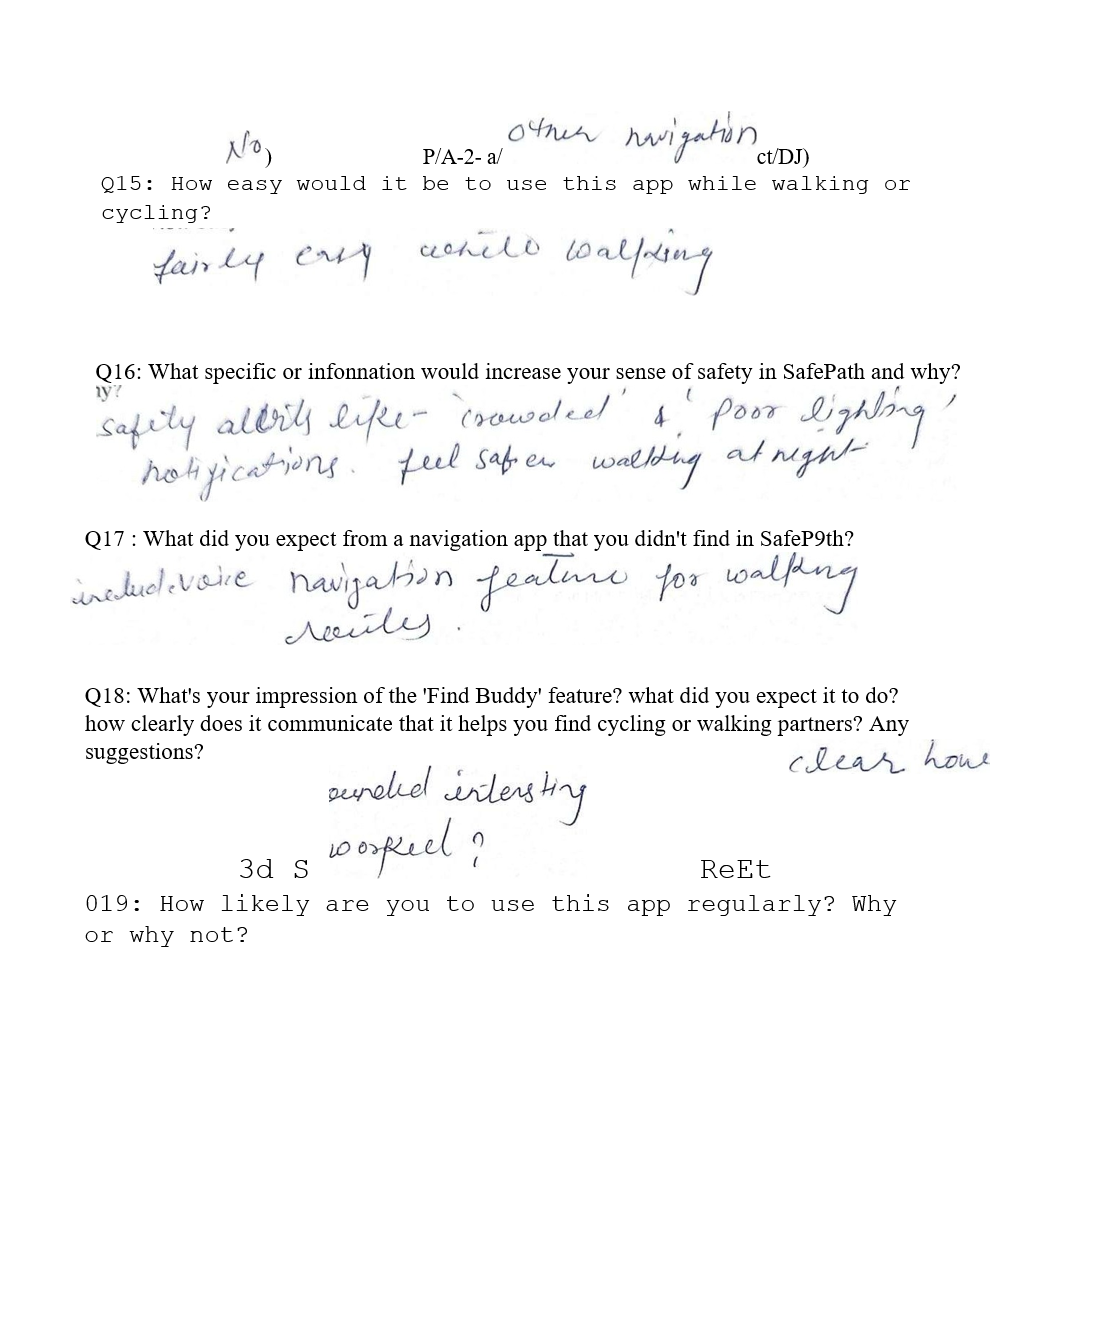 other navigation
No) P/A-2- a/ ct/DJ)
Q15: How easy would it be to use this app while walking or
cycling?
fairly easy while walking
Q16: What specific or infonnation would increase your sense of safety in SafePath and why?
ıy?
safety alerts like - 'crowded' & 'poor lighting'
notifications. feel safer walking at night
Q17 : What did you expect from a navigation app that you didn't find in SafeP9th?
include voice navigation feature for walking
routes.
Q18: What's your impression of the 'Find Buddy' feature? what did you expect it to do?
how clearly does it communicate that it helps you find cycling or walking partners? Any
suggestions?
clear how
intersting
worked ?
3d S ReEt
019: How likely are you to use this app regularly? Why
or why not?